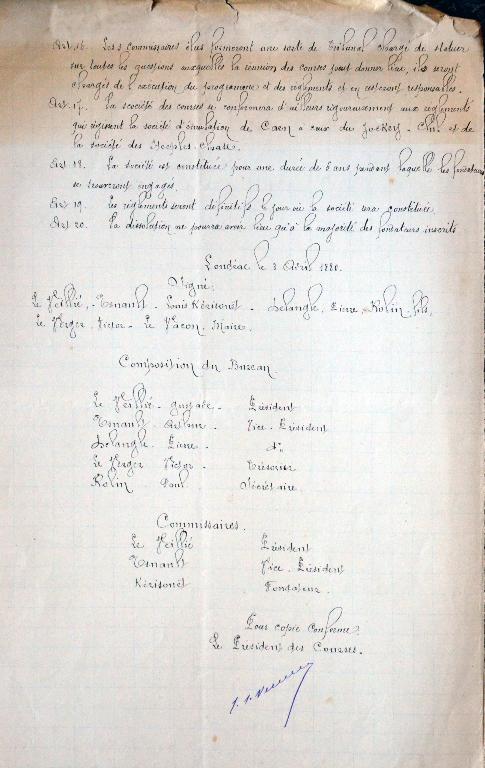 Art. 16. Les 3 commissaires élus formeront une sorte de Tribunal chargé de statuer
sur toutes les questions auxquelles la réunion des courses peut donner lieu, ils seront
chargés de l'exécution du programme et des règlements et en resteront responsables.
Art. 17. La société des courses se conformera d'ailleurs rigoureusement aux règlements
qui régissent la société d'émulation de Caen à ceux du Jockey-Club et de
la société des Steeples-Chases.
Art 18. La société est constituée pour une durée de 5 ans pendant laquelle les fondateurs
se trouveront engagés.
Art. 19. Les règlements seront définitifs le jour où la société sera constituée.
Art. 20. La dissolution ne pourra avoir lieu qu'à la majorité des fondateurs inscrits
Loudéac le 3 Avril 1880.
Signé:
Le Veillié, Esnault - Louis Kérisonet - Delangle, Pierre, Robin, fils,
Le Verger, Victor - Le Vacon, Maire.
Composition du Bureau
Le Veillié - Gustave - Président
Esnault - Arthur - Vice-Président
Delangle - Pierre - do
Le Verger Victor - Trésorier
Robin Paul Secrétaire.
Commissaires.
Le Veillié Président
Esnault Vice-Président
Kérisonet Fondateur.
Pour copie conforme
Le Président des Courses.